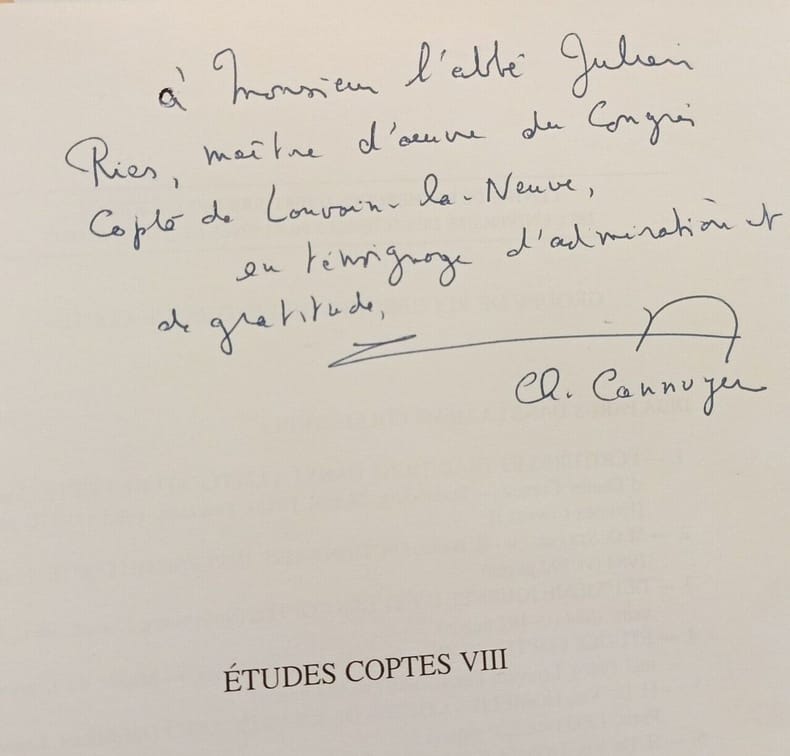 à Monsieur l'abbé Julien
Ries, maître d'œuvre du Congrès
Copte de Louvain-la-Neuve,
en témoignage d'admiration et
de gratitude,
Ch. Cannuyer
ÉTUDES COPTES VIII